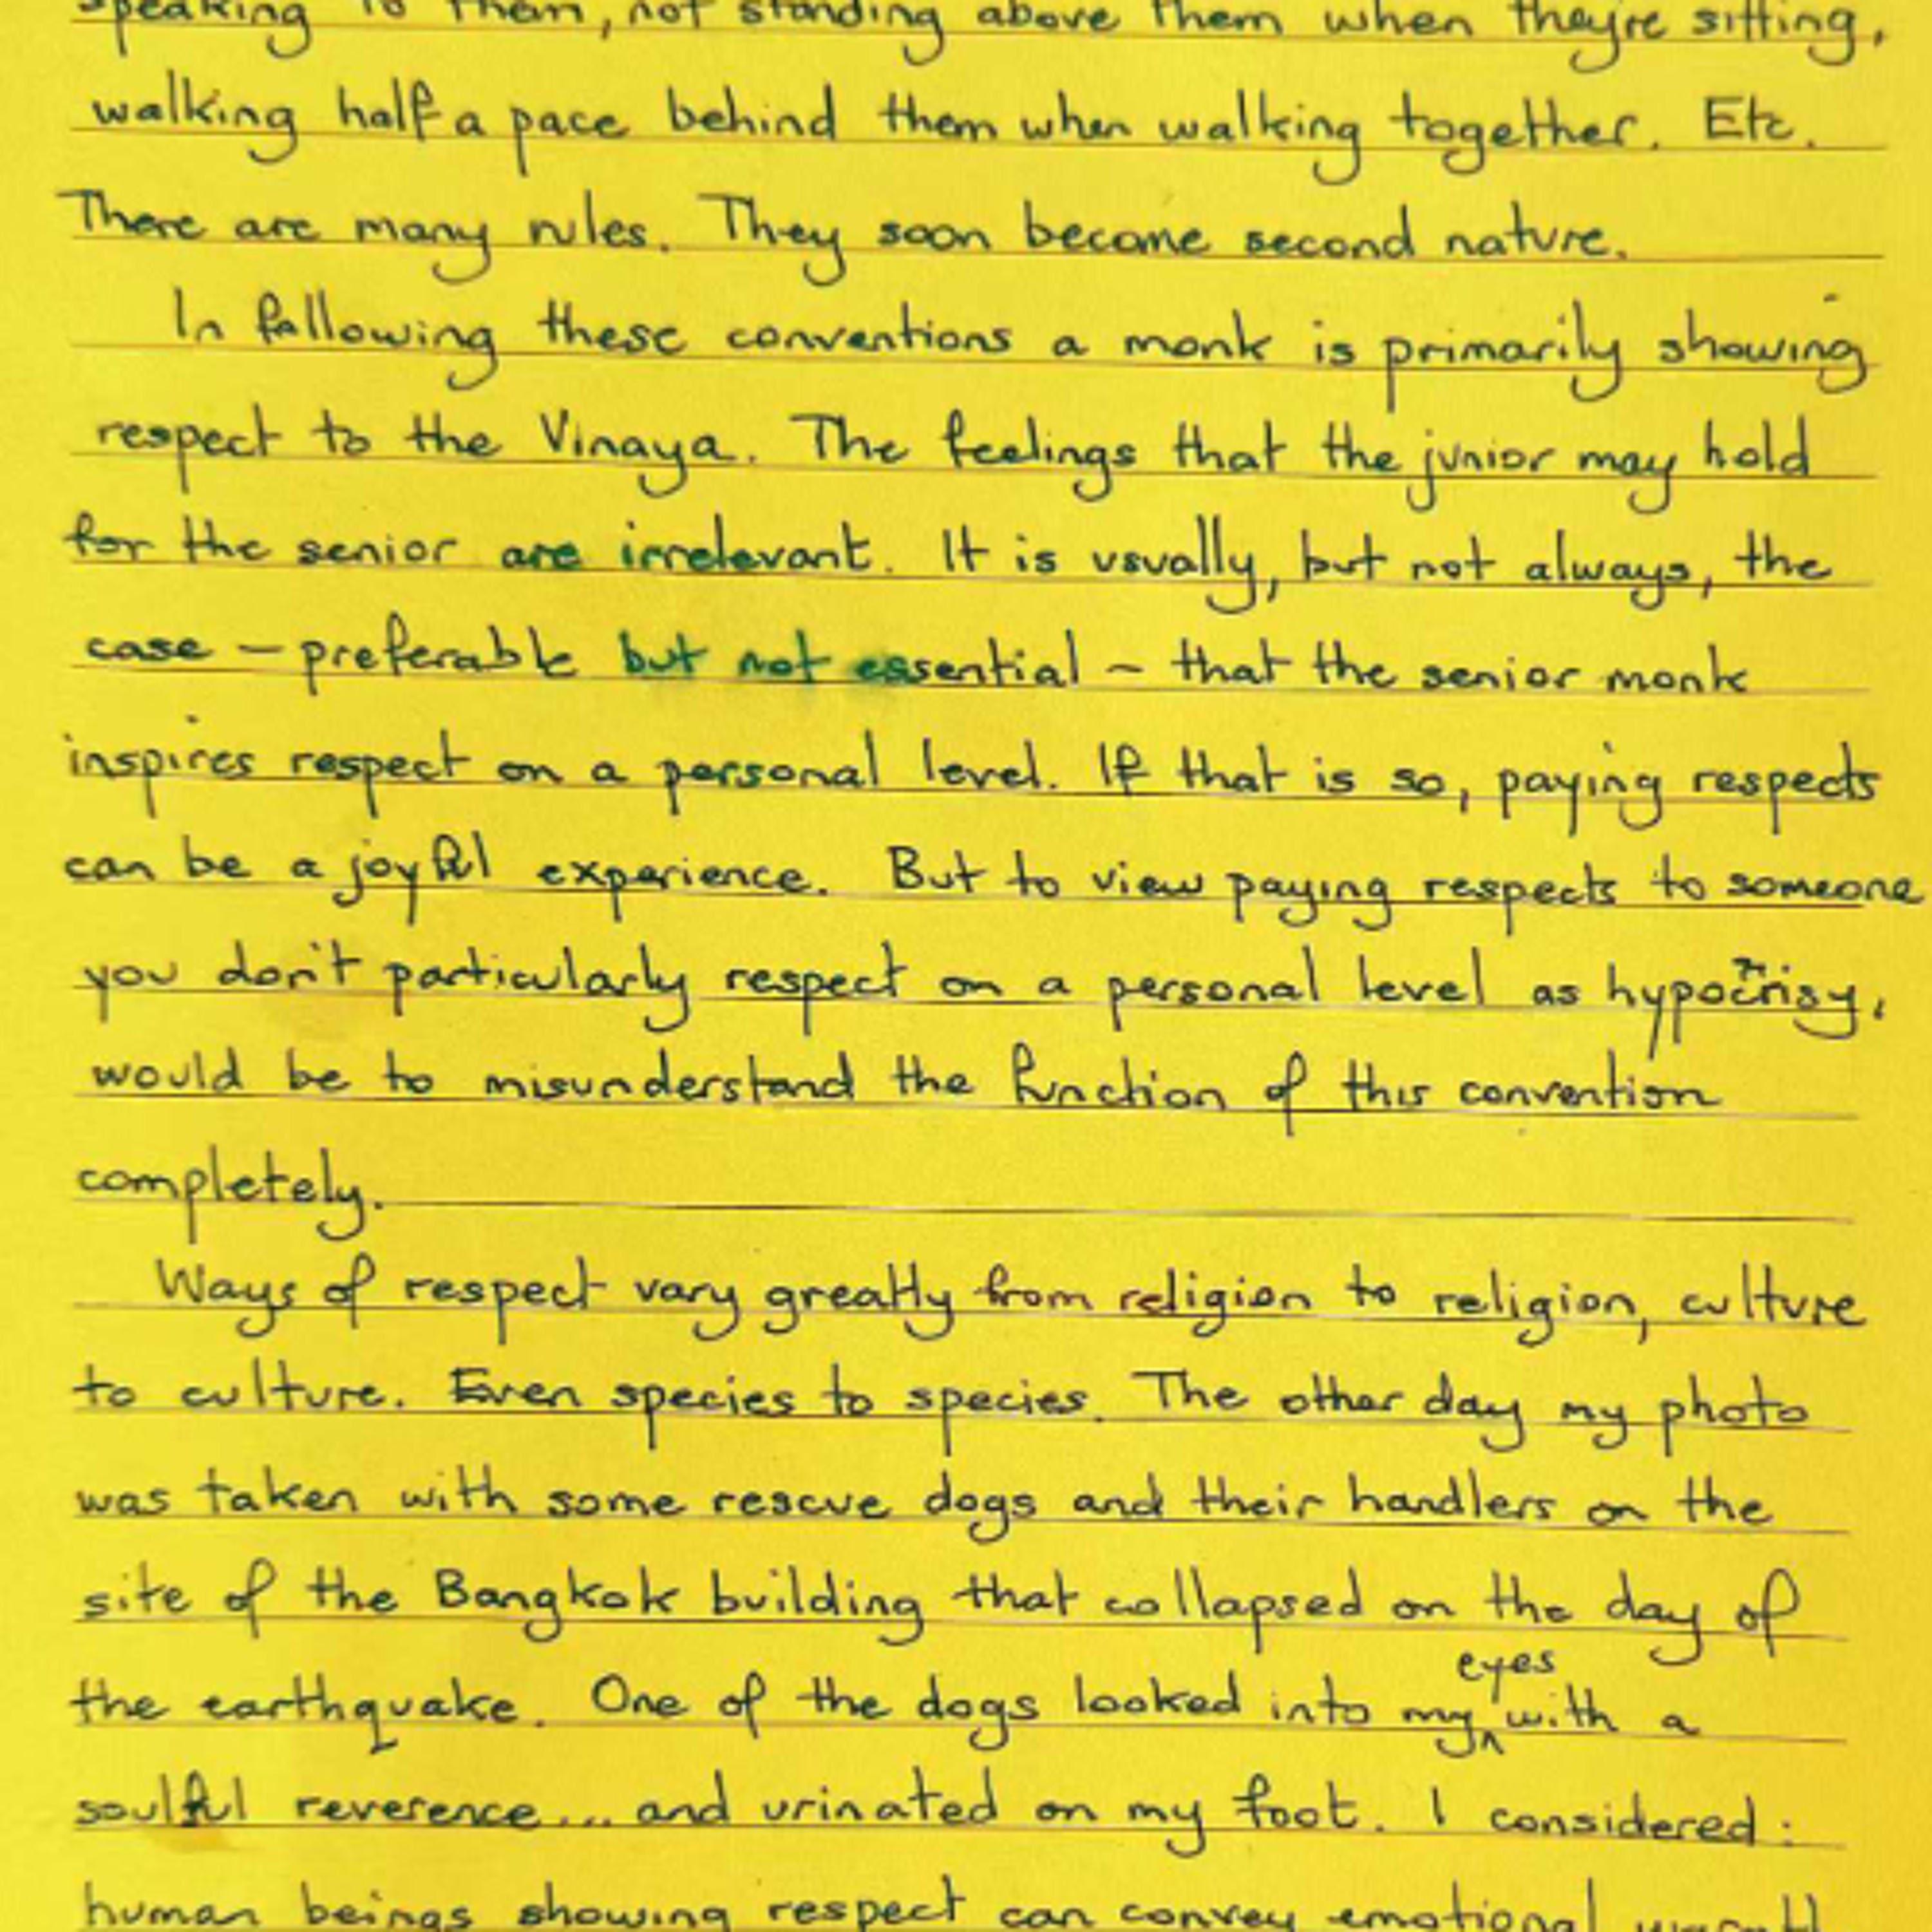 speaking to them, not standing above them when they're sitting,
walking half a pace behind them when walking together. Etc.
There are many rules. They soon become second nature.
In following these conventions a monk is primarily showing
respect to the Vinaya. The feelings that the junior may hold
for the senior are irrelevant. It is usually, but not always, the
case – preferable but not essential – that the senior monk
inspires respect on a personal level. If that is so, paying respects
can be a joyful experience. But to view paying respects to someone
you don't particularly respect on a personal level as hypocrisy,
would be to misunderstand the function of this convention
completely.
Ways of respect vary greatly from religion to religion, culture
to culture. Even species to species. The other day my photo
was taken with some rescue dogs and their handlers on the
site of the Bangkok building that collapsed on the day of
the earthquake. One of the dogs looked into my eyes with a
soulful reverence... and urinated on my foot. I considered:
human beings showing respect can convey emotional warmth